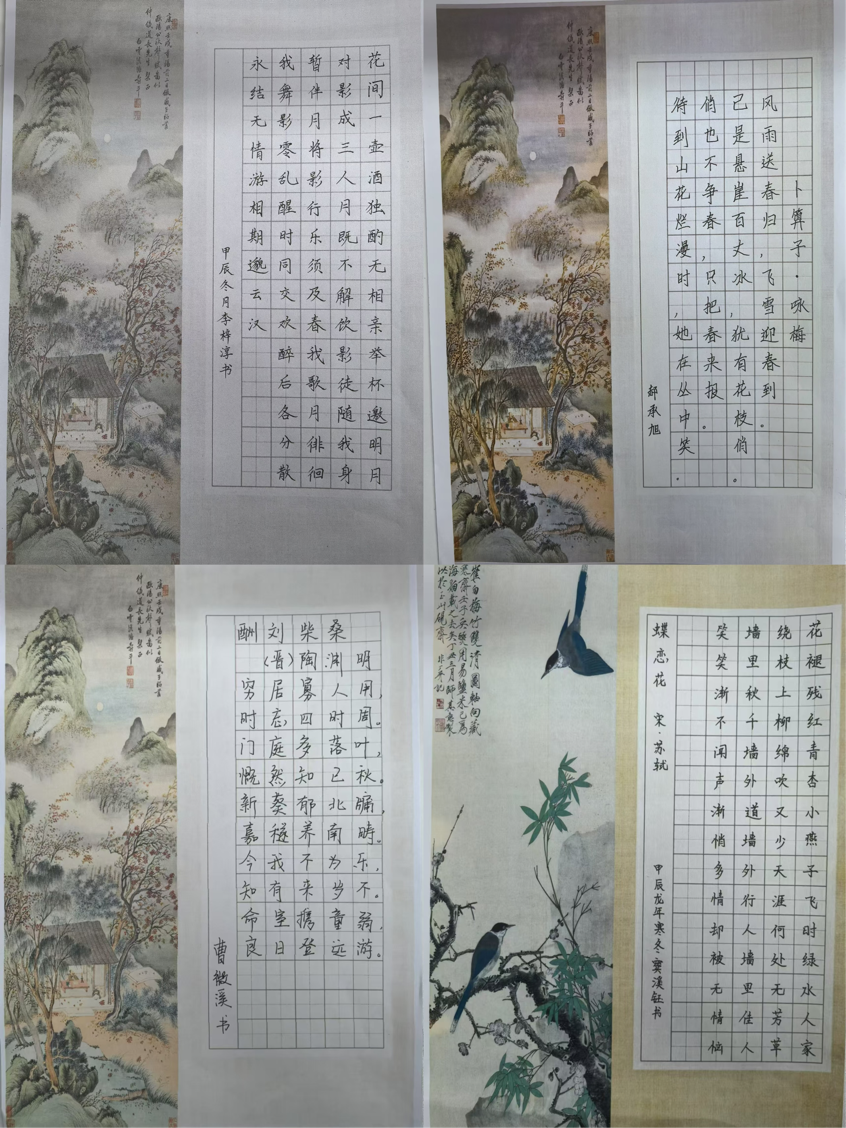 花间一壶酒独酌无相亲举杯邀明月
对影成三人月既不解饮影徒随我身
暂伴月将影行乐须及春我歌月徘徊
我舞影零乱醒时同交欢醉后各分散
永结无情游相期邈云汉
甲辰冬月李梓淳书
卜算子·咏梅
风雨送春归，飞雪迎春到。
已是悬崖百丈冰，犹有花枝俏。
俏也不争春，只把春来报。
待到山花烂漫时，她在丛中笑.
承旭
酬刘柴桑
(晋)陶渊明
穷居寡人用，
时忘四时周。
门庭多落叶，
慨然知已秋。
新葵郁北牖，
嘉穟养南畴。
今我不为乐，
知有来岁不。
命室携童弱，
良日登远游。
曹微溪书
花褪残红青杏小燕子飞时绿水人家
绕枝上柳绵吹又少天涯何处无芳草
墙里秋千墙外道墙外行人墙里佳人
笑笑渐不闻声渐悄多情却被无情恼
蝶恋花 宋·苏轼
甲辰龙年寒冬窦溪钰书